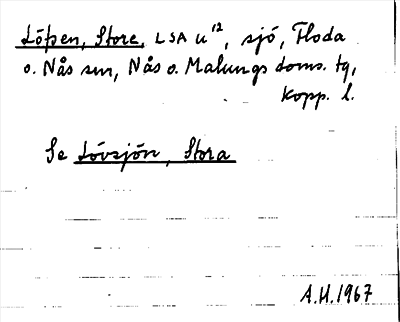 Löpen, Store, LSA u¹², sjö, Floda
o. Nås snr, Nås o. Malungs doms. tg,
Kopp. l.
Se Lövsjön, Stora
A.H. 1967